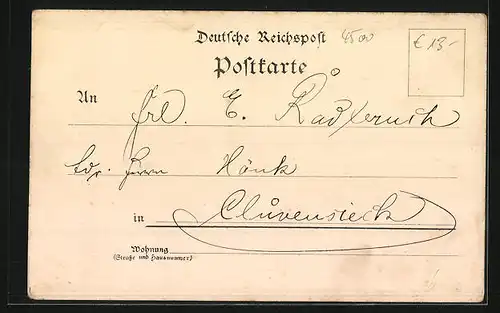 Deutsche Reichspost 4500
€ 13,-
Postkarte
An Frl. E.
Adr. Herrn Hönk
in Cluvensieck
Wohnung
(Straße und Hausnummer)